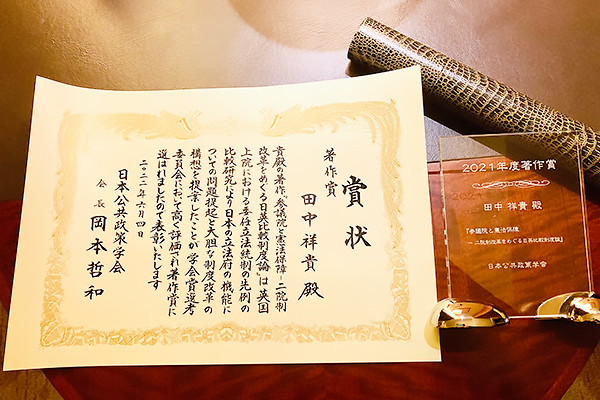 賞状
著作賞
田中祥貴 殿
貴殿の著作『参議院と憲法保障-二院制
改革をめぐる日英比較制度論』は英国
上院における委任立法統制の先例の
比較研究により日本の立法府の機能に
ついての問題提起と大胆な制度改革の
構想を提案したことが学会賞選考
委員会において高く評価され著作賞に
選ばれましたので表彰いたします
二〇二二年六月四日
日本公共政策学会
会長 岡本哲和
2021年度著作賞
田中 祥貴 殿
『参議院と憲法保障
－二院制改革をめぐる日英比較制度論』
日本公共政策学会